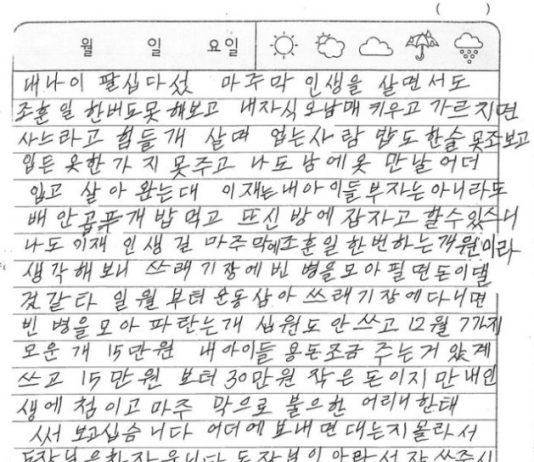 ( )
월 일 요일
내나이 팔십다섰 마주막 인생을 살면서도
조훈일 한버도못 해보고 내자식 오남매 키우고 가르치면
사느라고 힘들개 살며 업는사람 밥도 한술 못조보고
입든 옷한가지 못주고 나도 남에옷 만날 어더
입고 살아 왔는대 이재는 내아이들 부자는 아니라도
배안곱푸개 밥먹고 뜨신 방에 잠자고 할수있스니
나도 이재 인생 길 마주막에 조훈일 한번하는개 원이라
생각해 보니 쓰래기장에 빈 병을 모아 필면 돈이댈
것같타 일월 부터 운동삼아 쓰래기장에 다니면
빈 병을 모아 파란는개 십원도 안쓰고 12월 7가지
모운개 15만원 내아이들 용돈조금 주는거 았계
쓰고 15만원 보터 30만원 작은 돈이지만 내인
생에 첨이고 마주 막으로 불으한 어리니한태
써 보고십습니다 어더에 보내면 대는지 몰라서